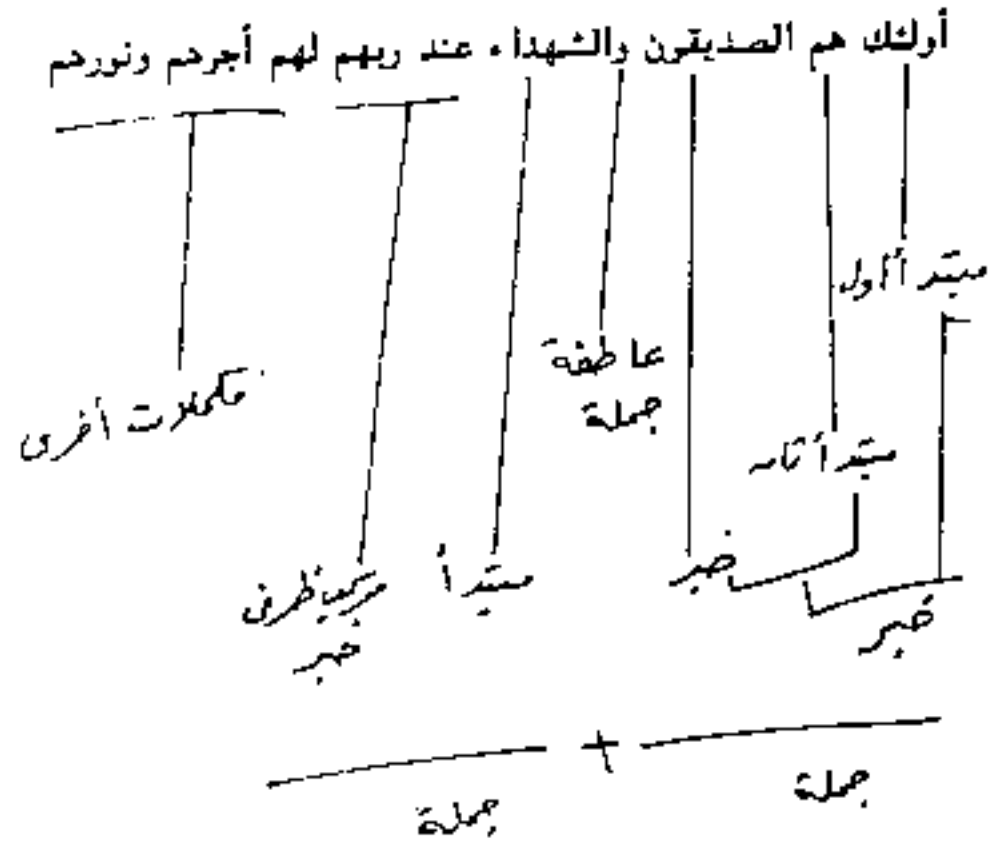 أولئك هم الصديقون والشهداء عند ربهم لهم أجرهم ونورهم
مبتدأ أول
عاطفة
جملة
مكملات أخرى
مبتدأ ثان
خبر
مبتدأ
مركب ظرفي
خبر
خبر
جملة
+
جملة